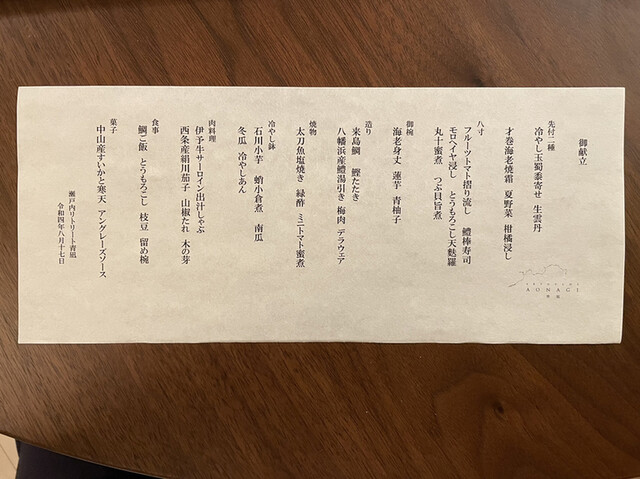 御献立
先付二種
冷やし玉蜀黍寄せ 生雲丹
才巻海老焼霜 夏野菜 柑橘浸し
八寸
フルーツトマト摺り流し 鱧棒寿司
モロヘイヤ浸し とうもろこし天麩羅
丸十蜜煮 つぶ貝旨煮
御椀
海老身丈 蓮芋 青柚子
造り
来島鯛 鰹たたき
八幡浜産鱧湯引き 梅肉 デラウェア
焼物
太刀魚塩焼き 緑酢 ミニトマト蜜煮
冷やし鉢
石川小芋 蛸小倉煮 南瓜
冬瓜 冷やしあん
肉料理
伊予牛サーロイン出汁しゃぶ
西条産絹川茄子 山椒たれ 木の芽
食事
鯛ご飯 とうもろこし 枝豆 留め椀
菓子
中山産すいかと寒天 アングレーズソース
瀬戸内リトリート青凪
令和四年八月十七日
SETOUCHI
AONAGI
青凪